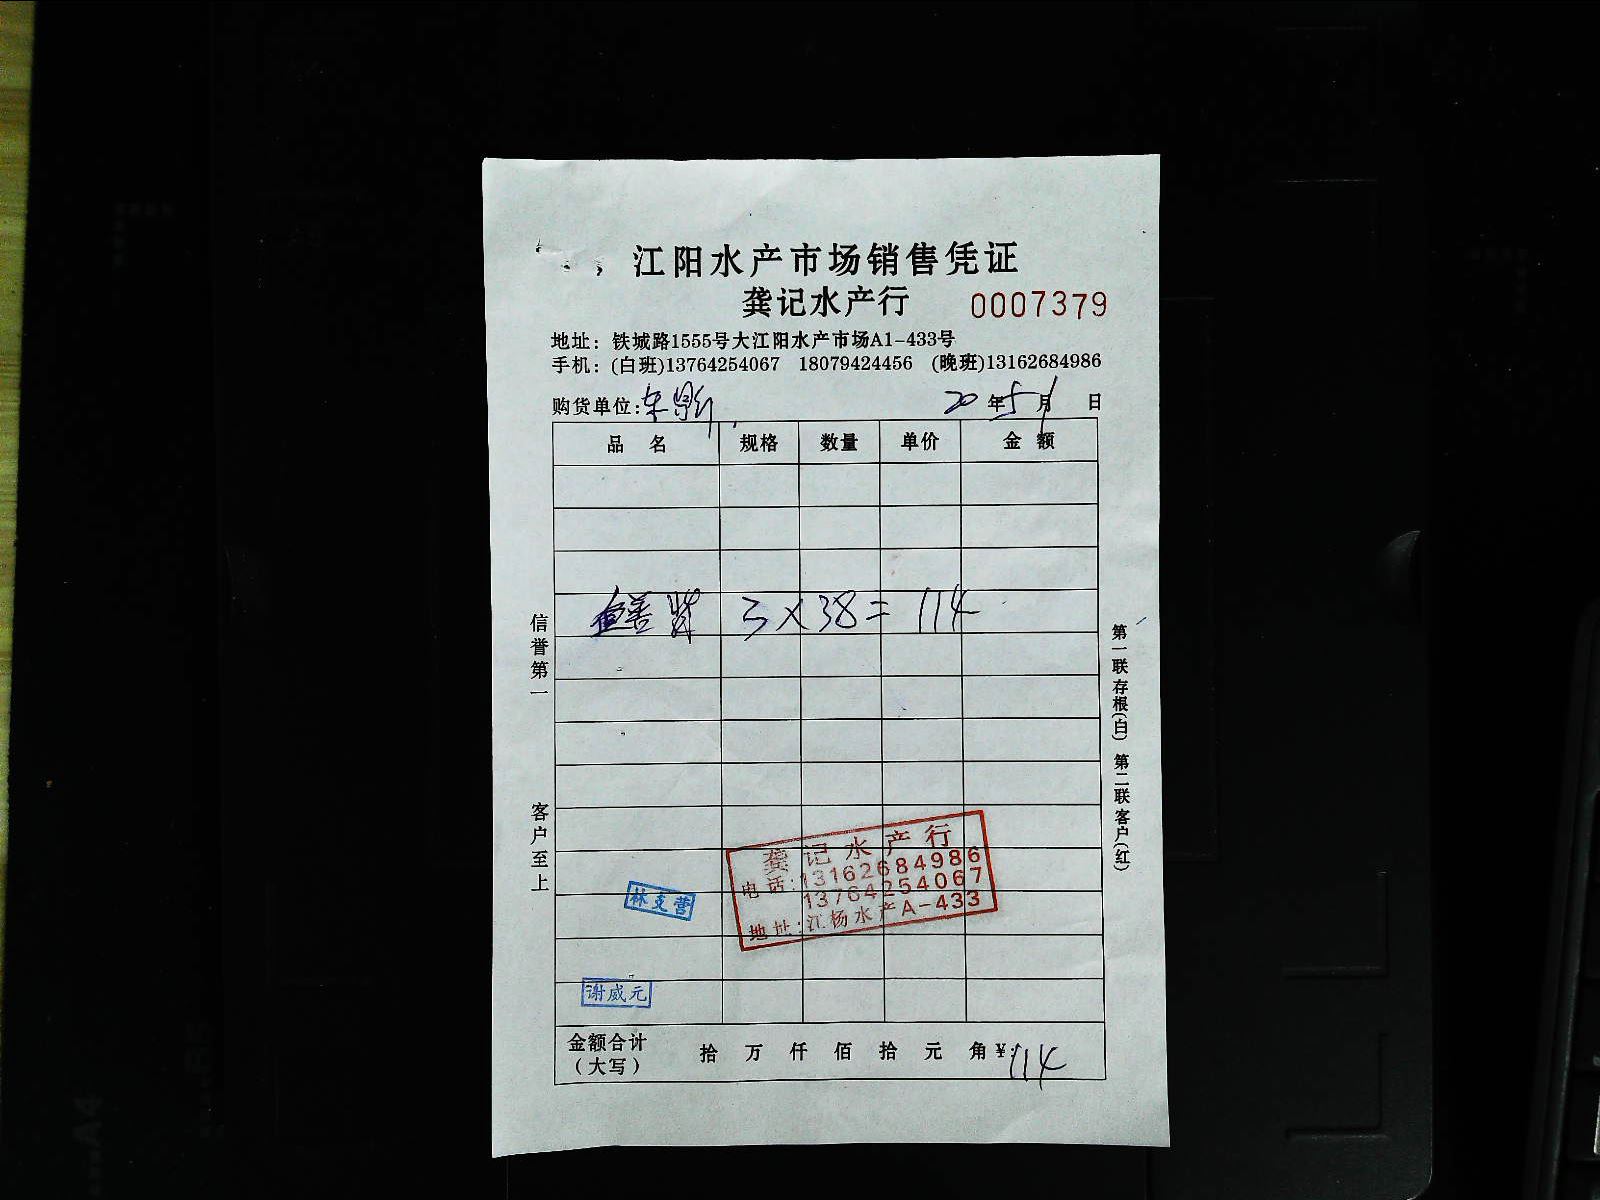 江阳水产市场销售凭证
龚记水产行 0007379
地址：铁城路1555号大江阳水产市场A1-433号
手机：(白班)13764254067 18079424456 (晚班)13162684986
购货单位: 20年5月1日
品名 规格 数量 单价 金额
3×38=114
信誉第一 客户至上
第一联存根(白) 第二联客户(红)
龚记水产行
电话:13162684986
13764254067
地址:江杨水产A-433
林支营
谢威元
金额合计 拾 万 仟 佰 拾 元 角 ¥:114
（大写）